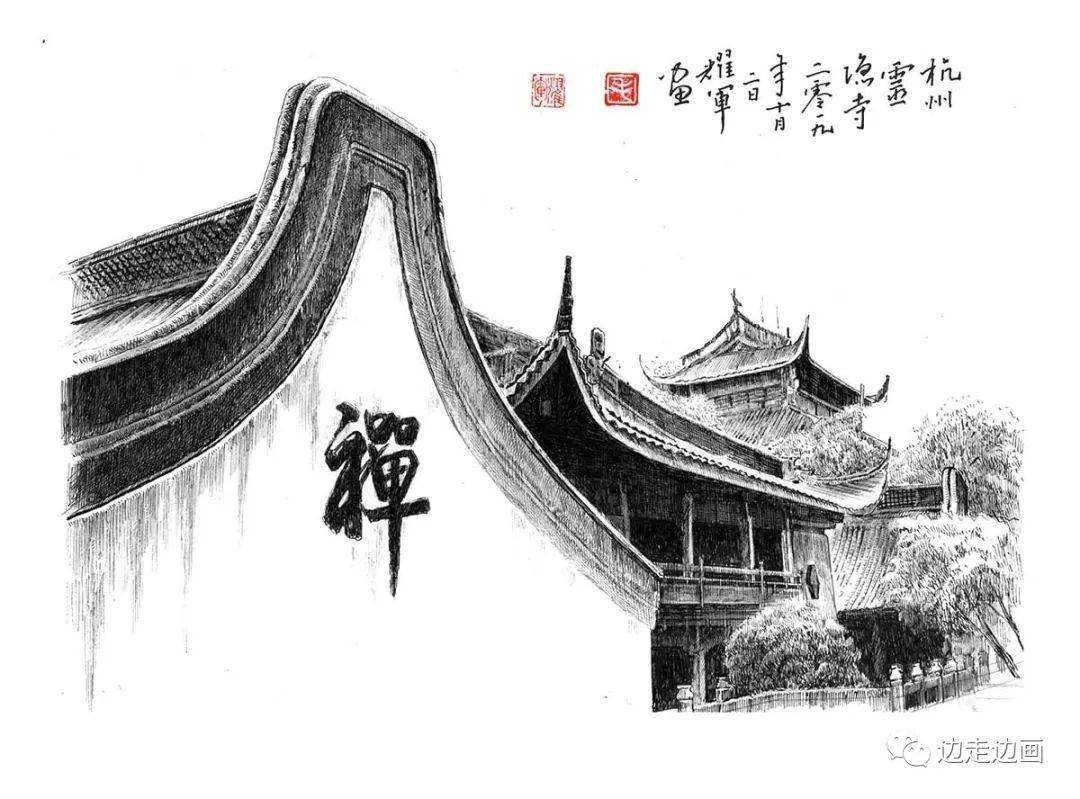 杭州
靈
隐寺
二零一九
年十月
二日
耀軍
画
禪
边走边画